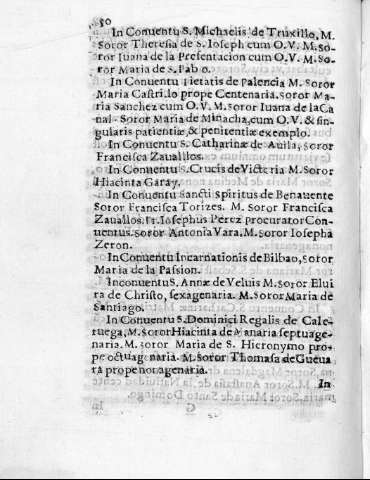 50
In Conventu S. Michaelis de Truxillo, M.
Soror Theresia de S. Ioseph cum O.V. M. So-
ror Iuana de la Presentacion cum O.V. M. So-
ror Maria de S. Pablo.
In Conventu Pietatis de Palencia M. Soror
Maria Castrillo prope Centenaria. Soror Ma-
ria Sanchez cum O.V. M. Soror Iuana de la Ca
nal. Soror Maria de Minacha, cum O.V. & sin-
gularis patientiæ, & pœnitentiæ exemplo.
In Conventu S. Catharinæ de Auila, Soror
Francisca Zauallos.
In Conventu S. Crucis de Victoria M. Soror
Hiacinta Garay.
In Conventu Sancti Spiritus de Benauente
Soror Francisca Torizes. M. Soror Francisca
Zauallos. Fr. Iosephus Perez procurator Con-
uentus. Soror Antonia Vara. M. Soror Iosepha
Zeron.
In Conventu Incarnationis de Bilbao, Soror
Maria de la Passion.
In conuentu S. Annæ de Veluis M. Soror Elui
ra de Christo, sexagenaria. M. Soror Maria de
Santiago.
In Conventu S. Dominici Regalis de Cale-
ruega, M. Soror Hiacinta de Anaria septuage-
naria. M. Soror Maria de S. Hieronymo pro-
pe octuagenaria. M. Soror Thomasa de Gueua
ra prope nonagenaria.
In